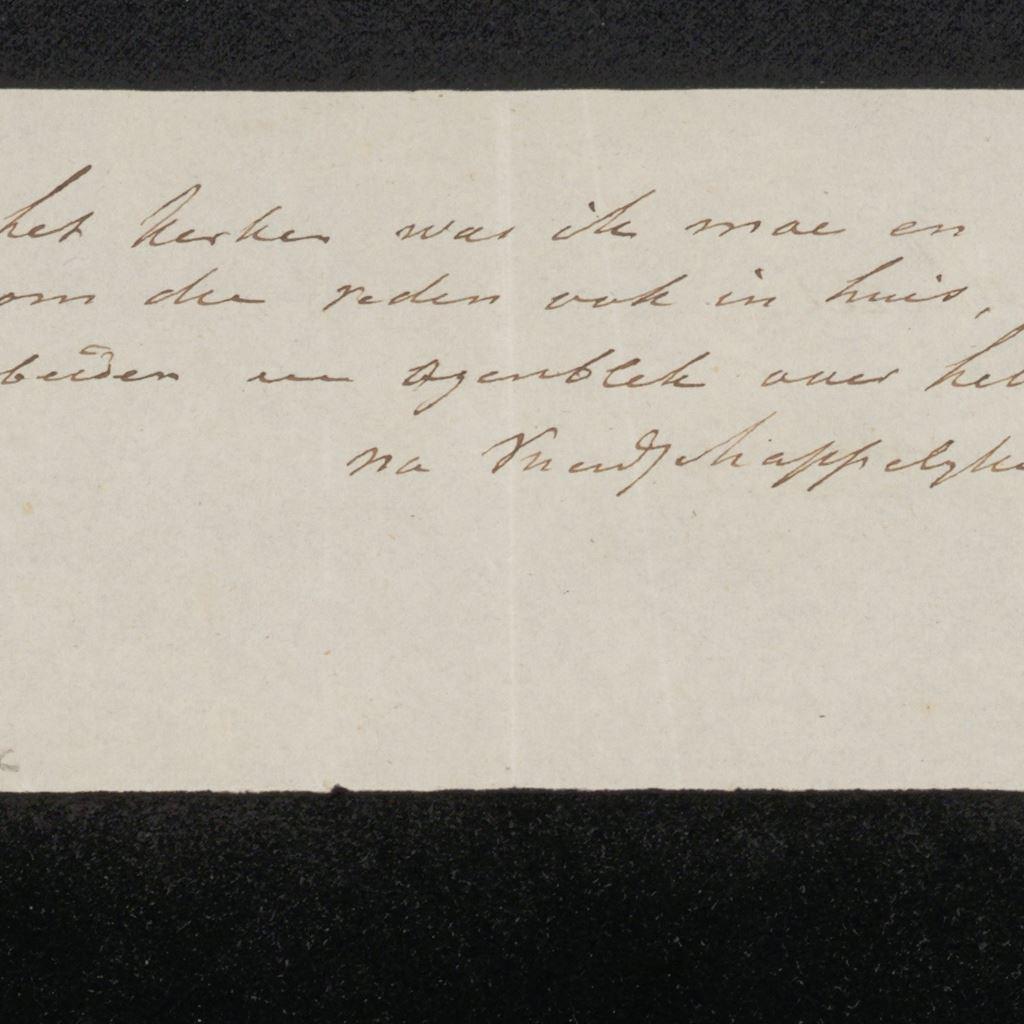 het kerken was ik moe en
om die reden ook in huis,
beiden een ogenblik over het
na Vriendschappelyke